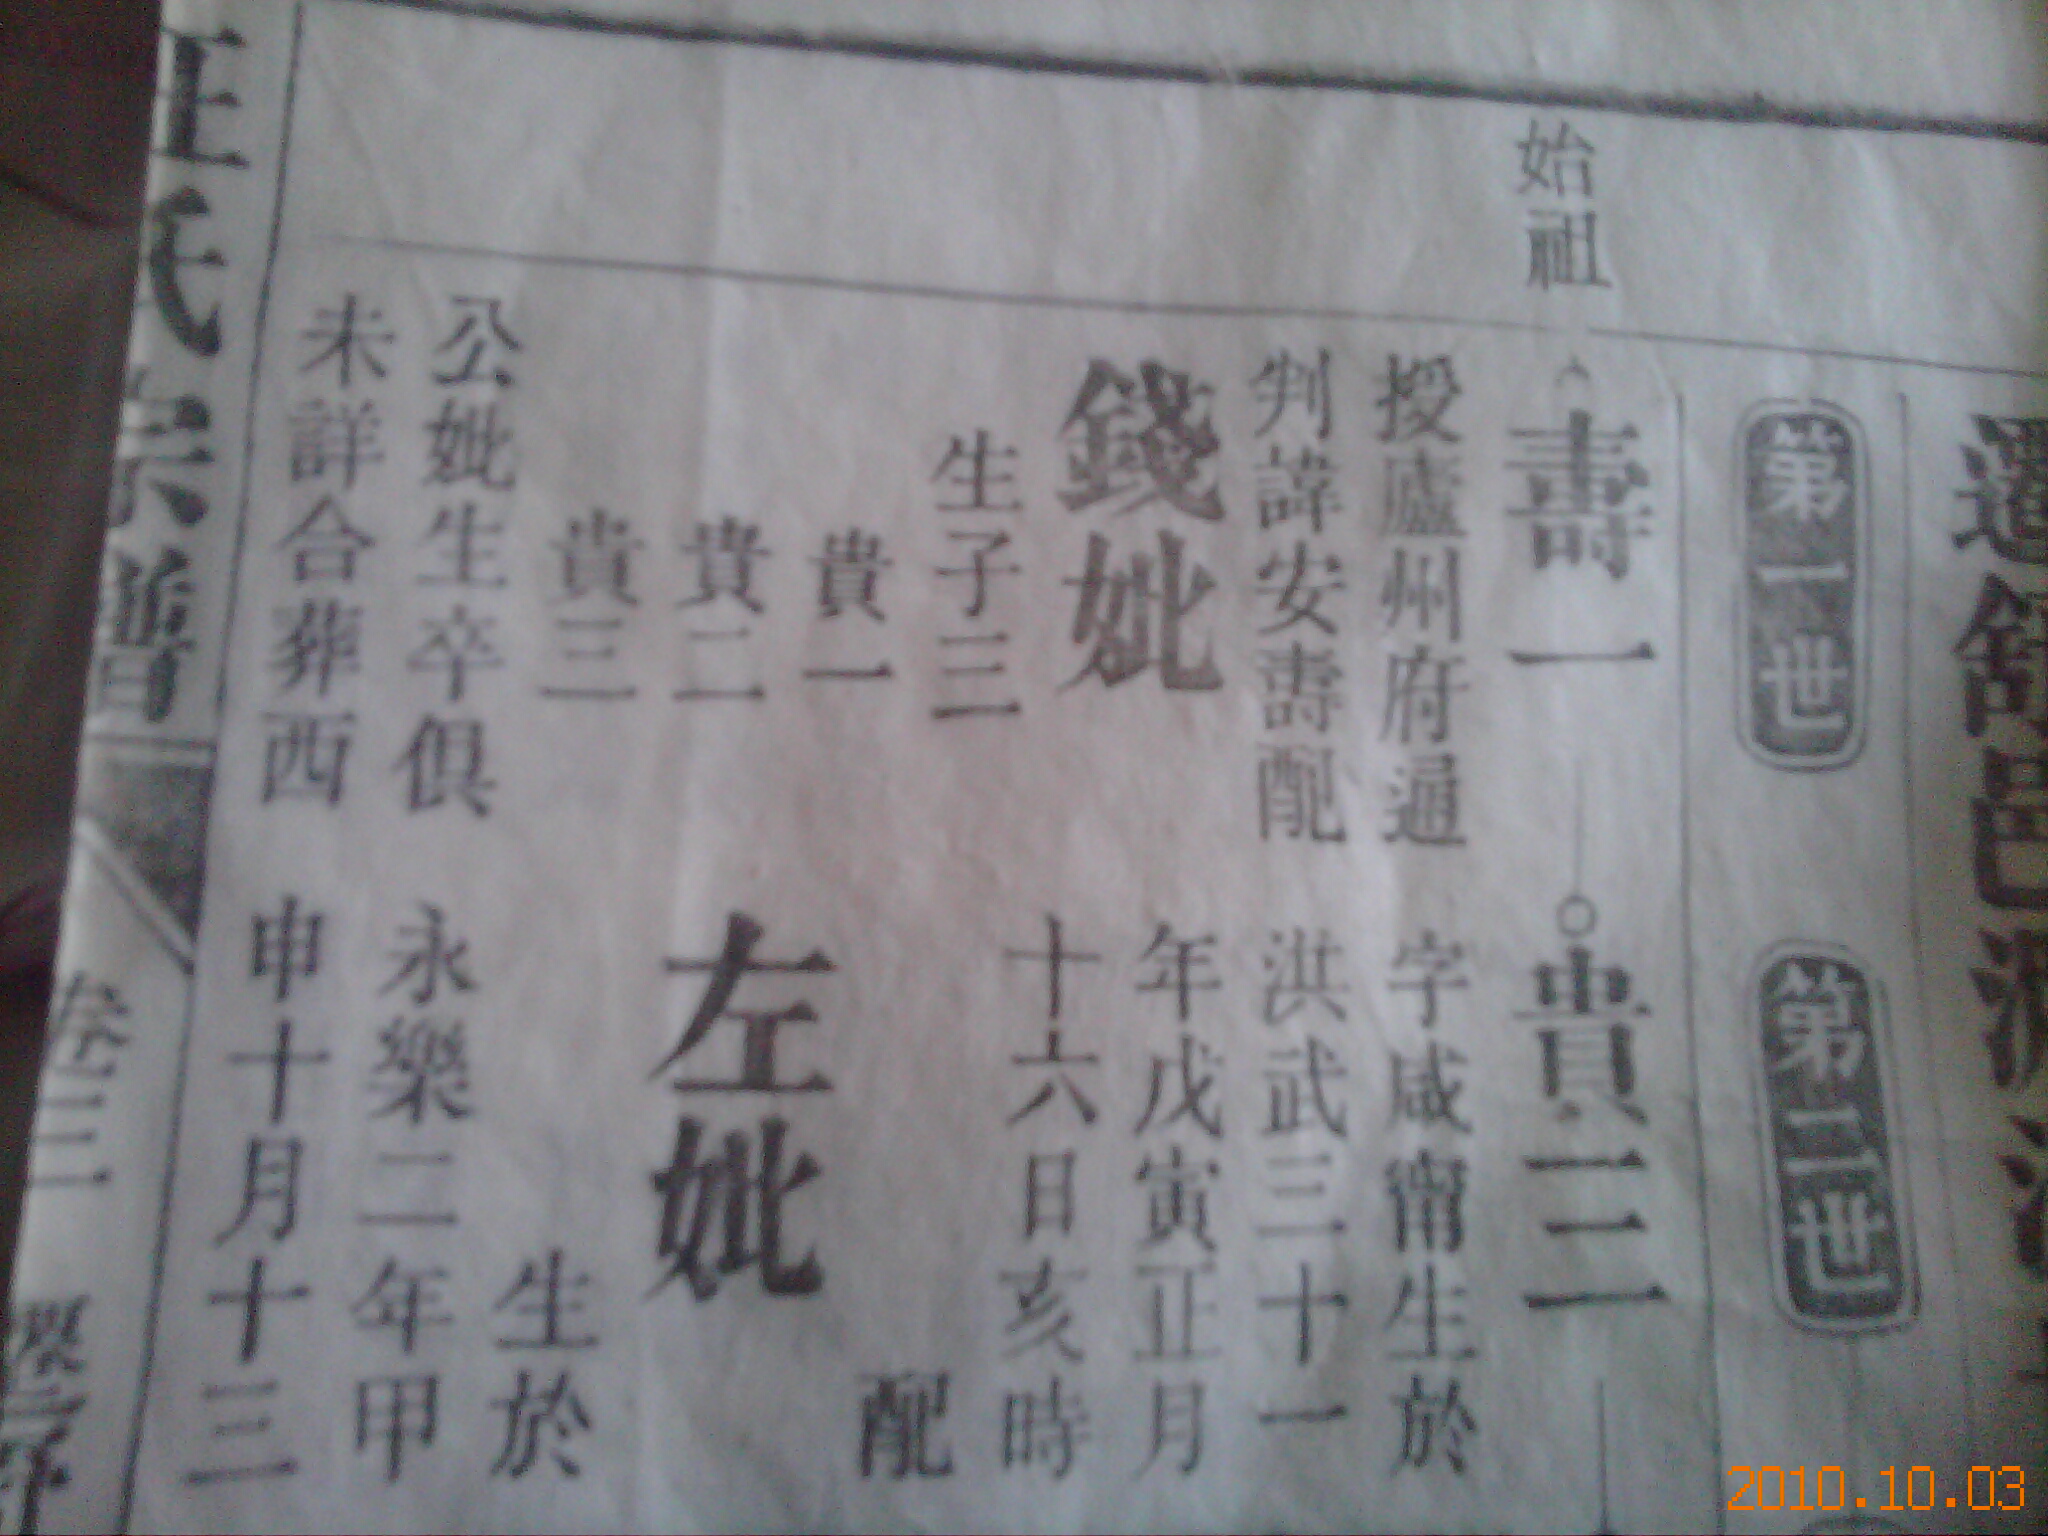 遷舒邑
第一世
第二世
始祖
壽一
貴三
授廬州府通
判諱安壽配
錢妣
生子三
貴一
貴二
貴三
公妣生卒俱
未詳合葬西
字咸甯生於
洪武三十一
年戊寅正月
十六日亥時
配
左妣
生於
永樂二年甲
申十月十三
氏宗譜
卷三
2010.10.03